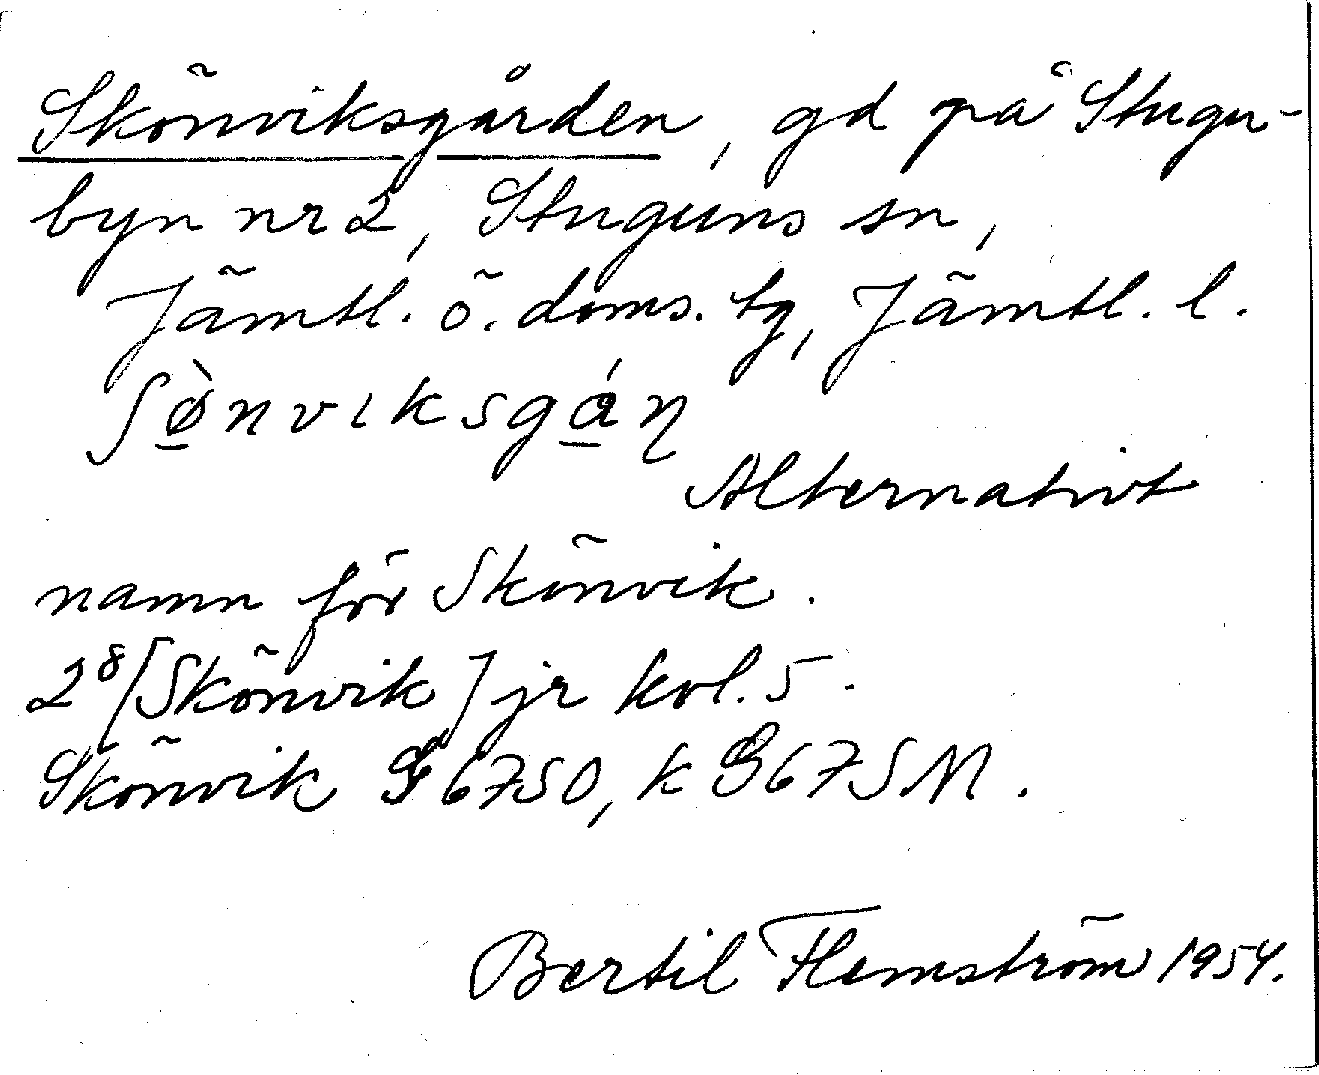 Skönviksgården, gd på Stugu-
byn nr 2, Stuguns sn,
Jämtl. ö. doms. tg, Jämtl. l.
ʃø̀nviksgáɳ
Alternativt
namn för Skönvik.
2⁸ [Skönvik] jr kol. 5.
Skönvik G67SO, k G67SM.
Bertil Flemström 1954.